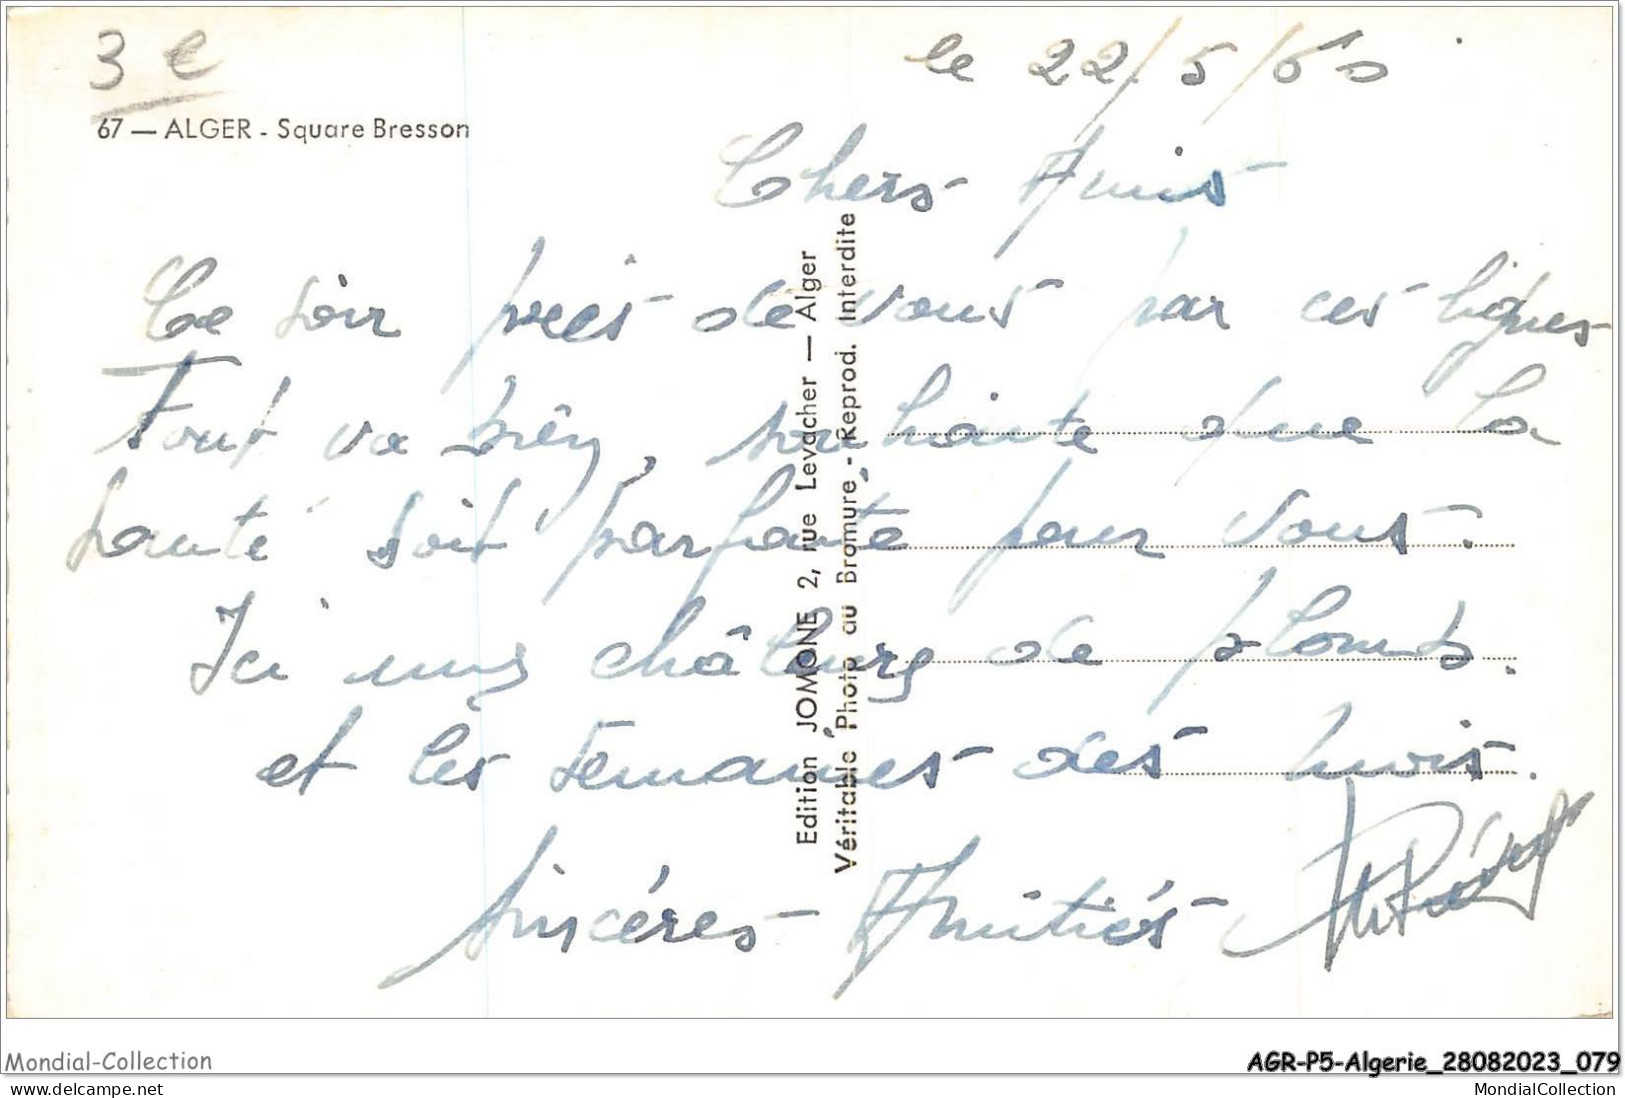 3 €
le 22/5/60.
67 — ALGER - Square Bresson
Chers Amis
Ce soir près de vous par ces lignes
Tout va bien, souhaite que la
santé soit parfaite pour vous.
Ici une chaleur de plomb.
et les semaines des mois.
Sincères Amitiés
Edition JOMONE 2, rue Levacher — Alger
Véritable Photo au Bromure - Reprod. Interdite
Mondial-Collection
AGR-P5-Algerie_28082023_079
www.delcampe.net
MondialCollection